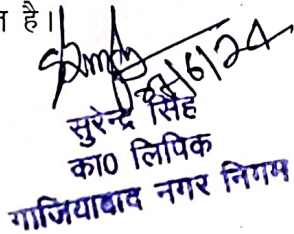 है।
6/24
सुरेन्द्र सिंह
का0 लिपिक
गाजियाबाद नगर निगम